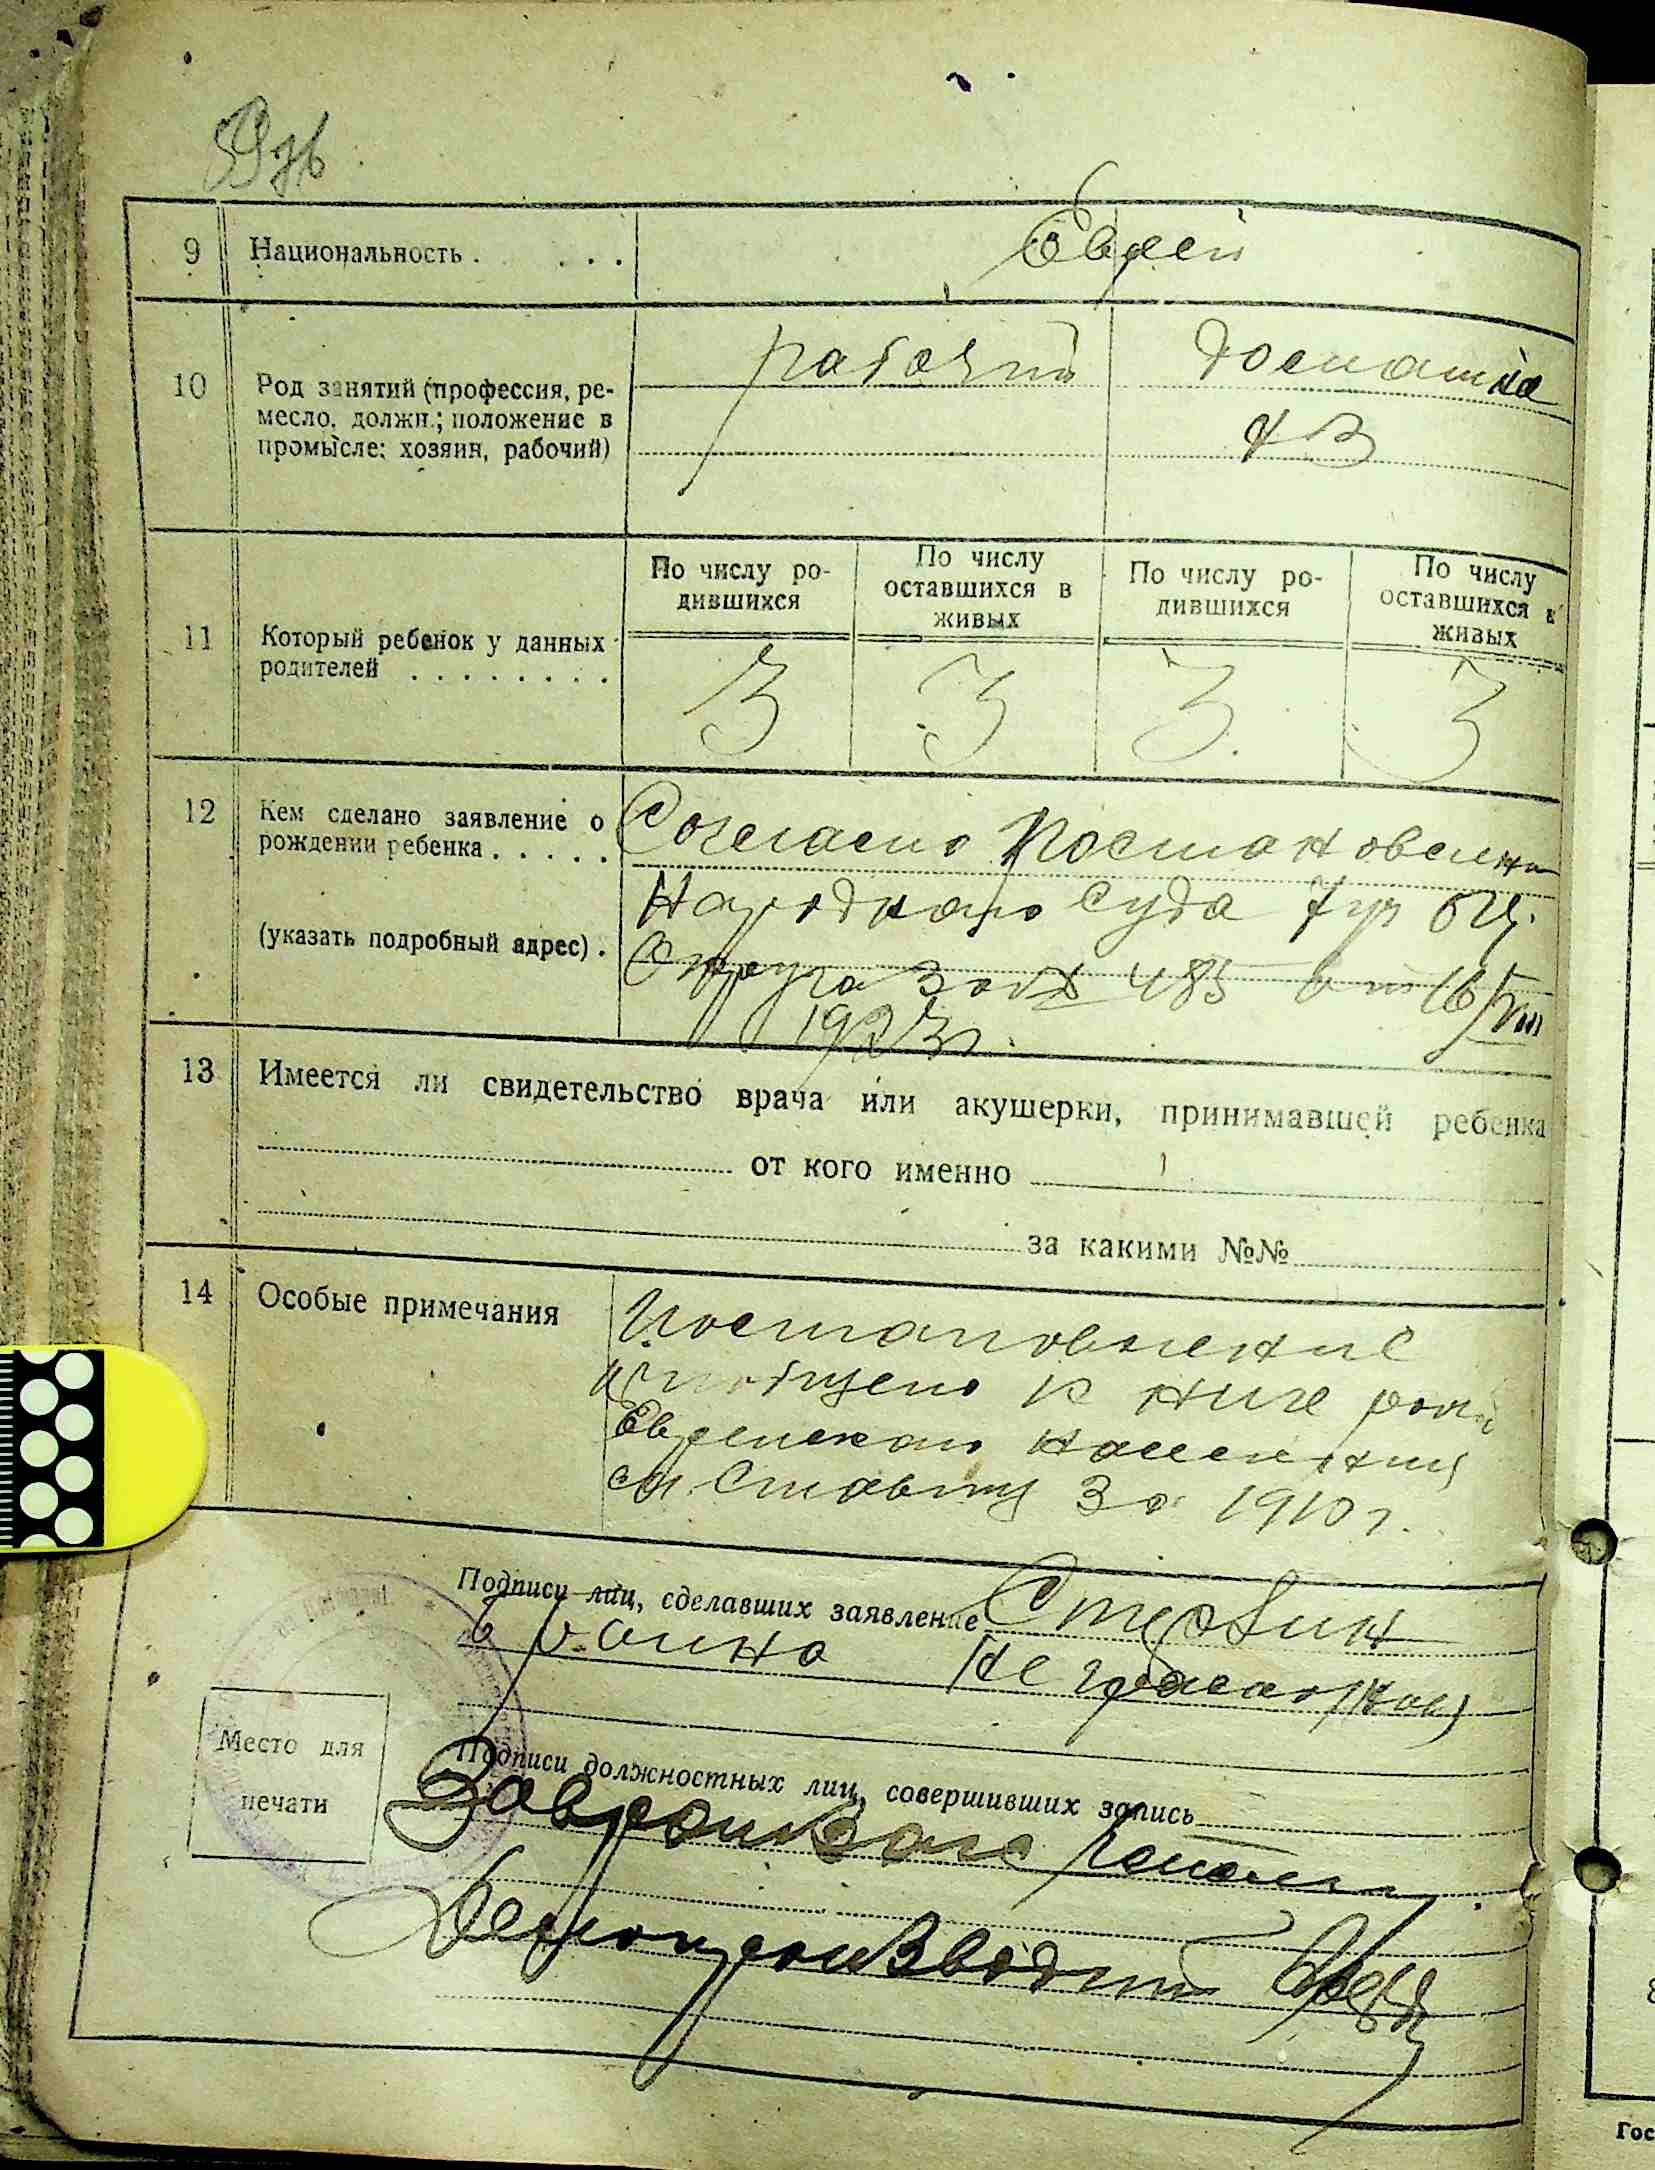 9 Национальность . . . . Еврей
10 Род занятий (профессия, ре-
месло, должн.; положение в
промысле: хозяин, рабочий)
рабочий
домашня
х-з
11 Который ребенок у данных
родителей . . . . . . . .
По числу ро-
дившихся
По числу
оставшихся в
живых
По числу ро-
дившихся
По числу
оставшихся в
живых
3 3 3 3
12 Кем сделано заявление о
рождении ребенка . . . . .
(указать подробный адрес) .
Согласно Постановлени
Народного Суда 7 уч
Округа за № 485 от 16/VIII
1923 г.
13 Имеется ли свидетельство врача или акушерки, принимавшей ребенка
от кого именно
за какими №№
14 Особые примечания
Постановление
к книге
Еврейского населения
за 1910 г.
Подписи лиц, сделавших заявление
неграмотной
Подписи должностных лиц, совершивших запись
Место для
печати
Делопроизводит
Гос